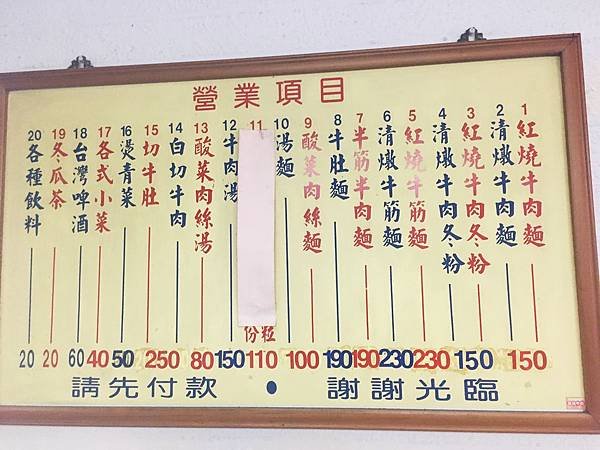 營業項目
1 紅燒牛肉麵
2 清燉牛肉麵
3 紅燒牛肉冬粉
4 清燉牛肉冬粉
5 紅燒牛筋麵
6 清燉牛筋麵
7 半筋半肉麵
8 牛肚麵
9 酸菜肉絲麵
10 湯麵
11
粒份
12 牛肉湯
13 酸菜肉絲湯
14 白切牛肉
15 切牛肚
16 燙青菜
17 各式小菜
18 台灣啤酒
19 冬瓜茶
20 各種飲料
20 20 60 40 50 250 80 150 110 100 190 190 230 230 150 150
請先付款 • 謝謝光臨